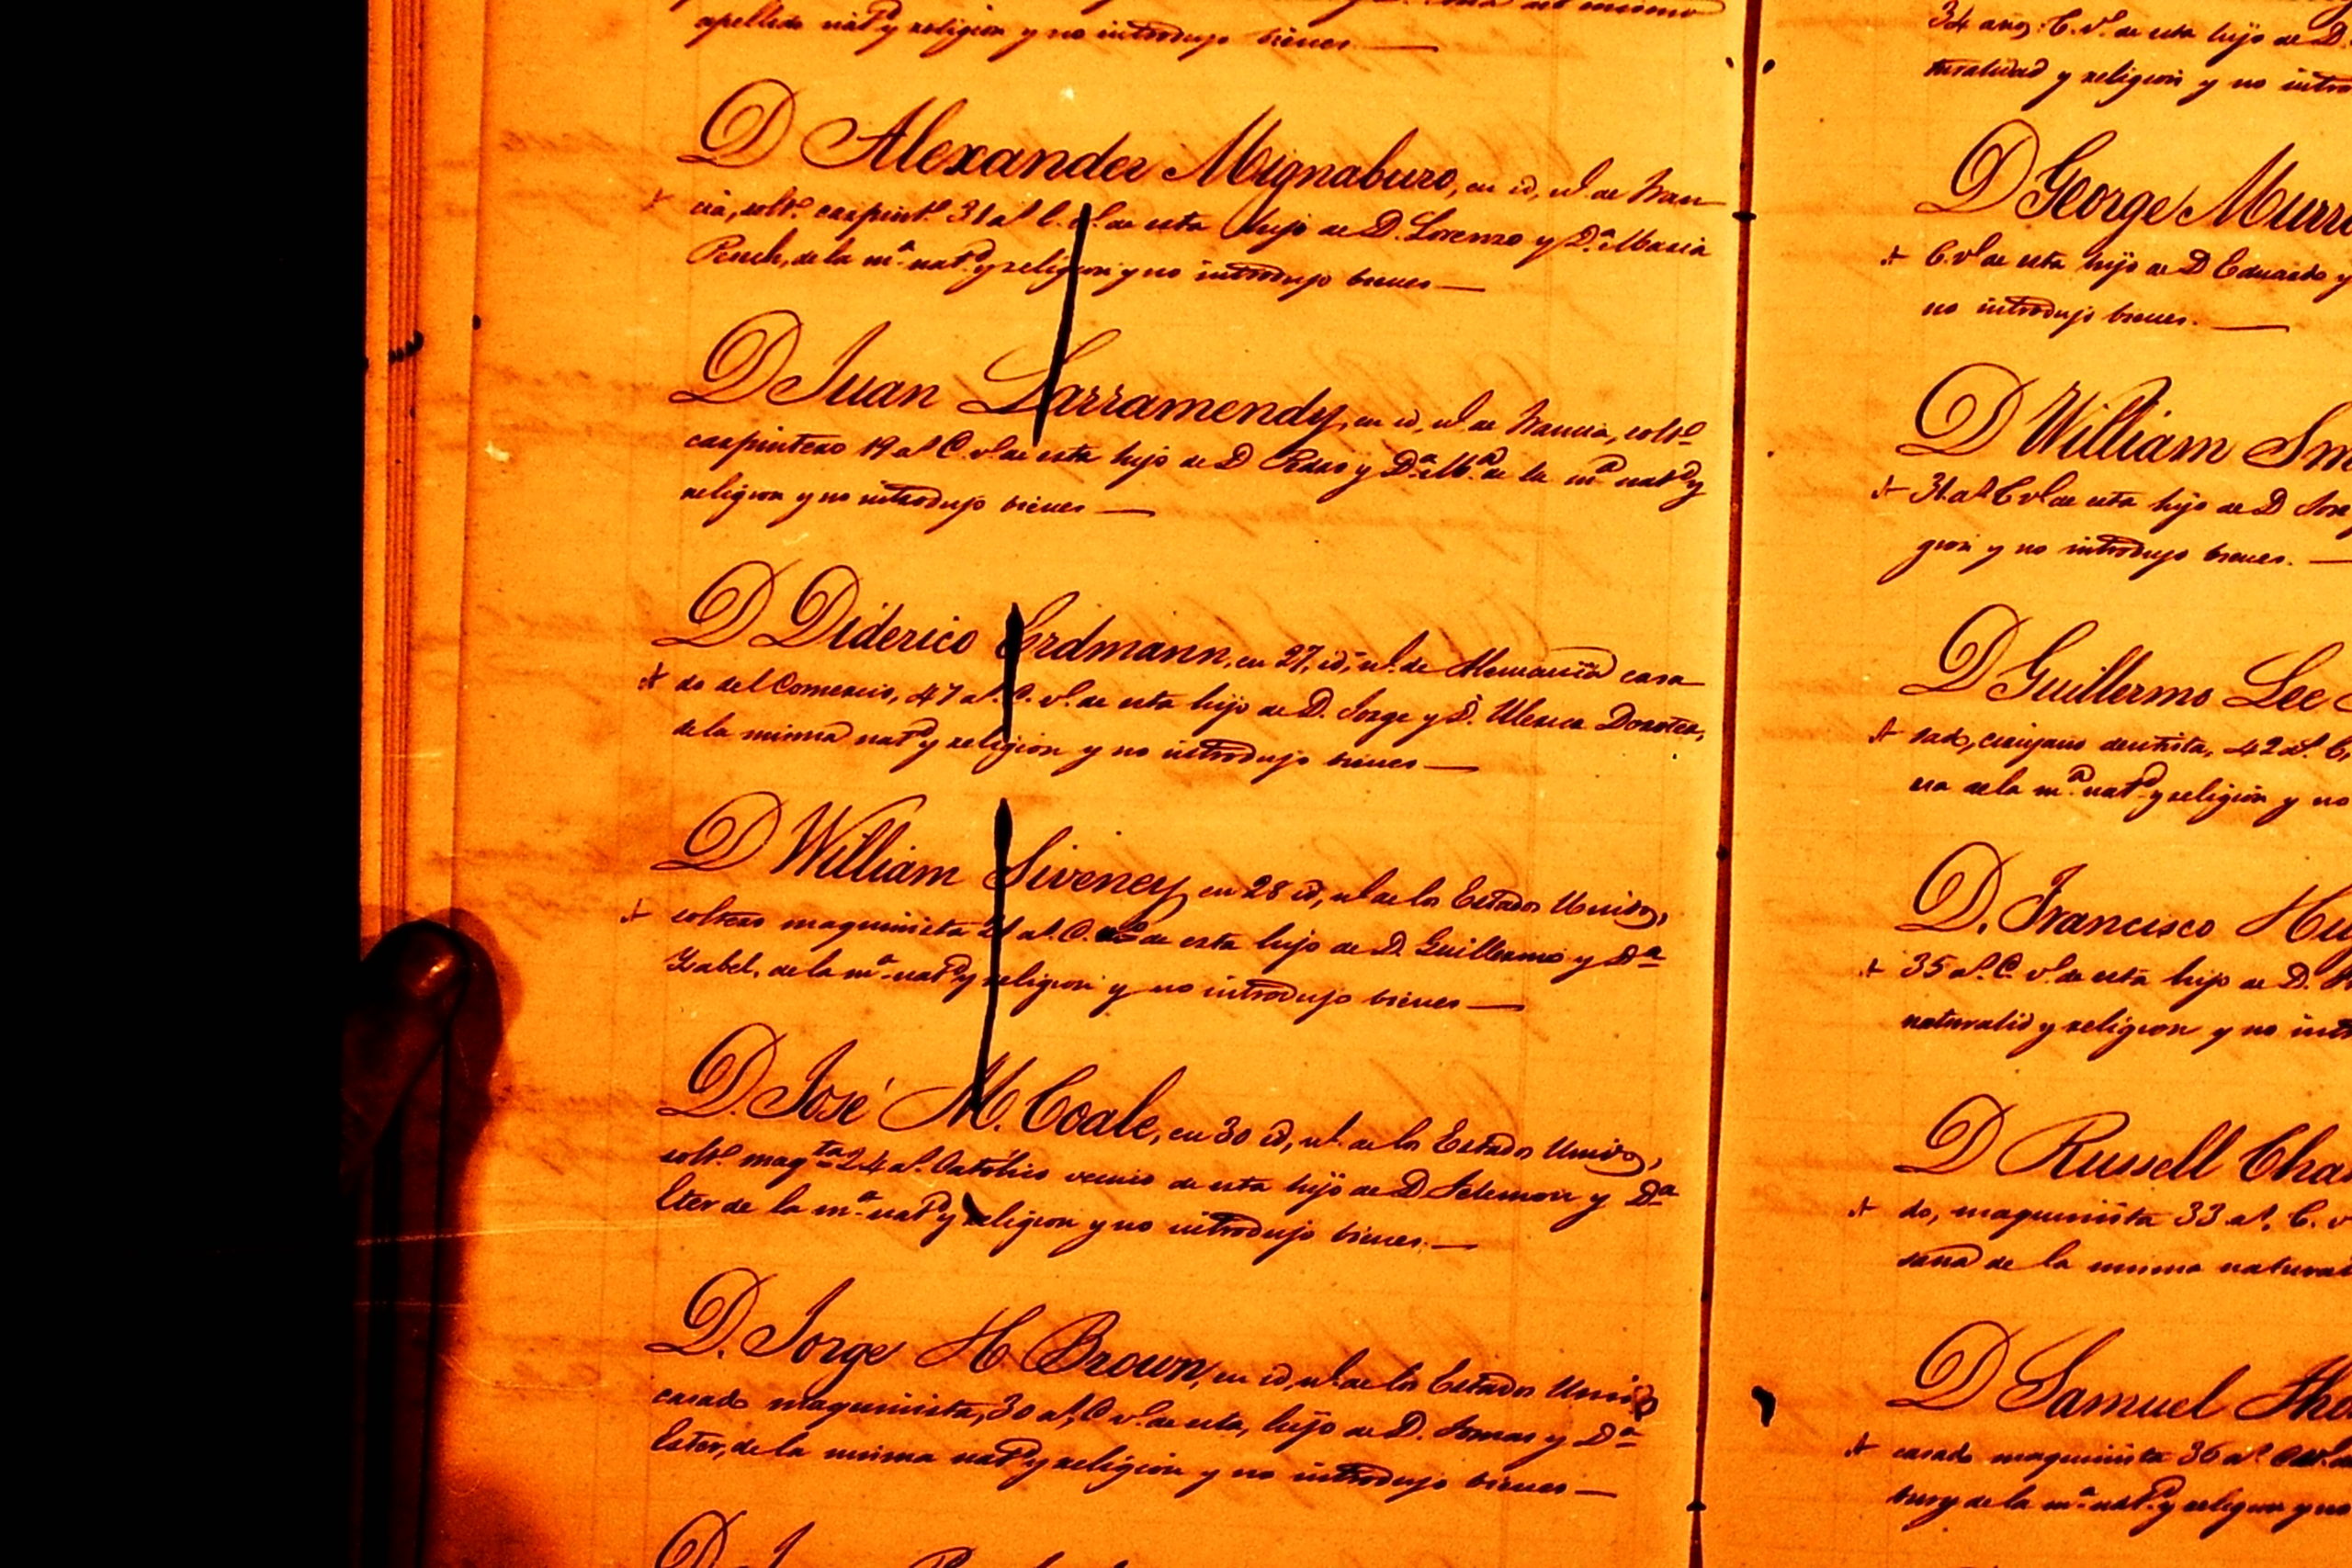 apellido natd y religion y no introdujo bienes.
D Alexander Mignaburo, en id, nl de Fran
cia, solto carpinto 31 al C. vo de esta hijo de D. Lorenzo y Da Maria
de la ma natd y religion y no introdujo bienes
D Juan Larramendy, en id, nl de Francia, solto
carpintero 19 al C. vo de esta hijo de D Pedro y Da Ma de la ma natd y
religion y no introdujo bienes
D Diderico Erdmann, en 27, id, nl. de Alemania casa
do del Comercio, 47 al. C. vo. de esta hijo de D. Jorge y D. Dorotea,
de la misma natd y religion y no introdujo bienes
D William Siveney en 28 id, nl de los Estados Unidos,
soltero maquinista 21 al. C. vo de esta hijo de D. Guillermo y Da
Isabel, de la ma natd y religion y no introdujo bienes
D. José M. Coale, en 30 id, nl. de los Estados Unidos,
solto maqta 24 al. Católico vecino de esta hijo de D y Da
Ester de la ma natd y religion y no introdujo bienes.
D. Jorge H Brown, en id, nl de los Estados Unid
casado maquinista, 30 al, C vo de esta, hijo de D. Tomas y Da
Ester, de la misma natd y religion y no introdujo bienes
D
34 ano, C. vo. de esta hijo de D.
turalidad y religion y no intro
D George Murr
C. vo de esta hijo de D Eduardo y
no introdujo bienes.
D William Sm
31. al C vo de esta hijo de D Jose
gion y no introdujo bienes.
D Guillermo Lee
sado, cirujano dentista, 42 al. C,
de la ma natd y religion y no
D. Francisco
35 al. C. vo. de esta hijo de D.
naturalid y religion y no int
D Russell Cha
do, maquinista 33 al, C. v
sana de la misma natural
D Samuel
casado maquinista 36 al
de la ma natd y religion y no